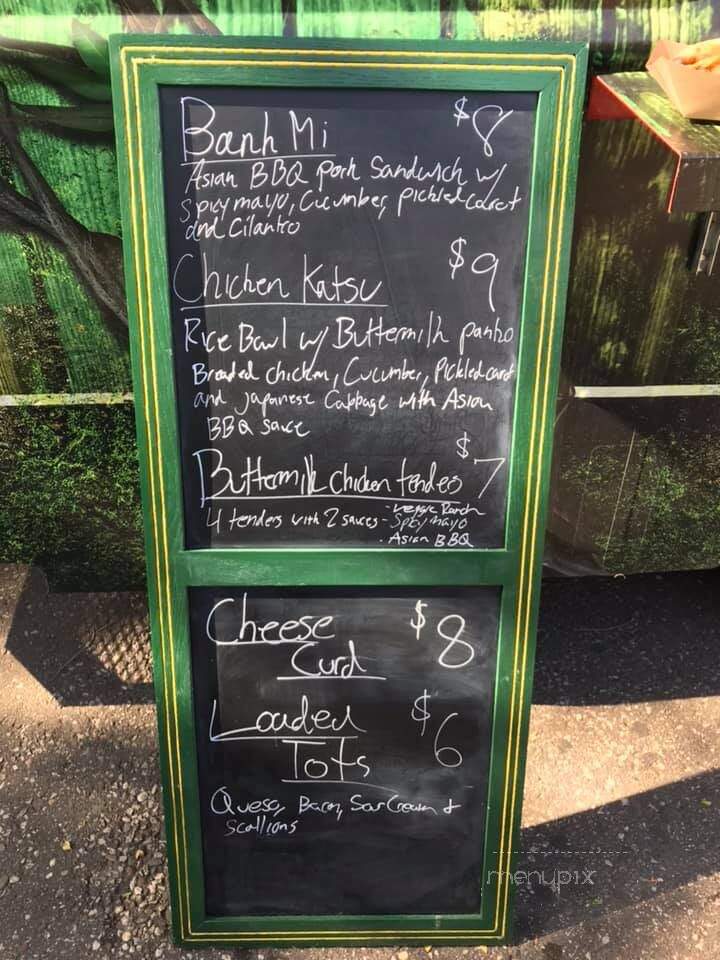 Banh Mi $8
Asian BBQ Pork Sandwich w/
Spicy mayo, Cucumber, pickled carrot
and Cilantro
Chicken Katsu $9
Rice Bowl w/ Buttermilk panko
Breaded chicken, Cucumber, Pickled carrot
and Japanese Cabbage with Asian
BBQ Sauce
Buttermilk chicken tenders $7
4 tenders with 2 sauces - Veggie Ranch
- Spicy mayo
- Asian BBQ
Cheese $8
Curd
Loaded $6
Tots
Queso, Bacon, Sour Cream &
Scallions
menupix